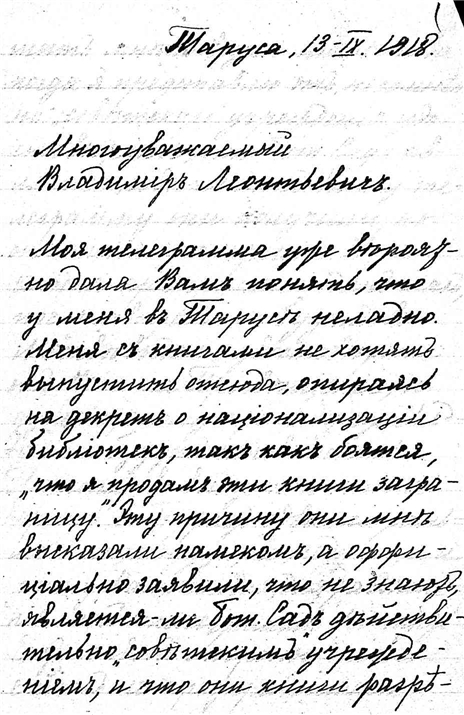 Таруса, 13-IX. 1918.
Многоуважаемый
Владимiръ Леонтьевичъ.
Моя телеграмма уже вѣроят-
но дала Вамъ понять, что
у меня въ Тарусѣ неладно.
Меня съ книгами не хотятъ
выпустить отсюда, опираясь
на декретъ о нацiонализацiи
библiотекъ, такъ какъ боятся,
„что я продамъ эти книги загра-
ницу“. Эту причину они мнѣ
высказали намекомъ, а оффи-
цiально заявили, что не знаютъ,
является-ли Бот. Садъ дѣйстви-
тельно „совѣтскимъ“ учрежде-
нiемъ, и что они книги разрѣ-